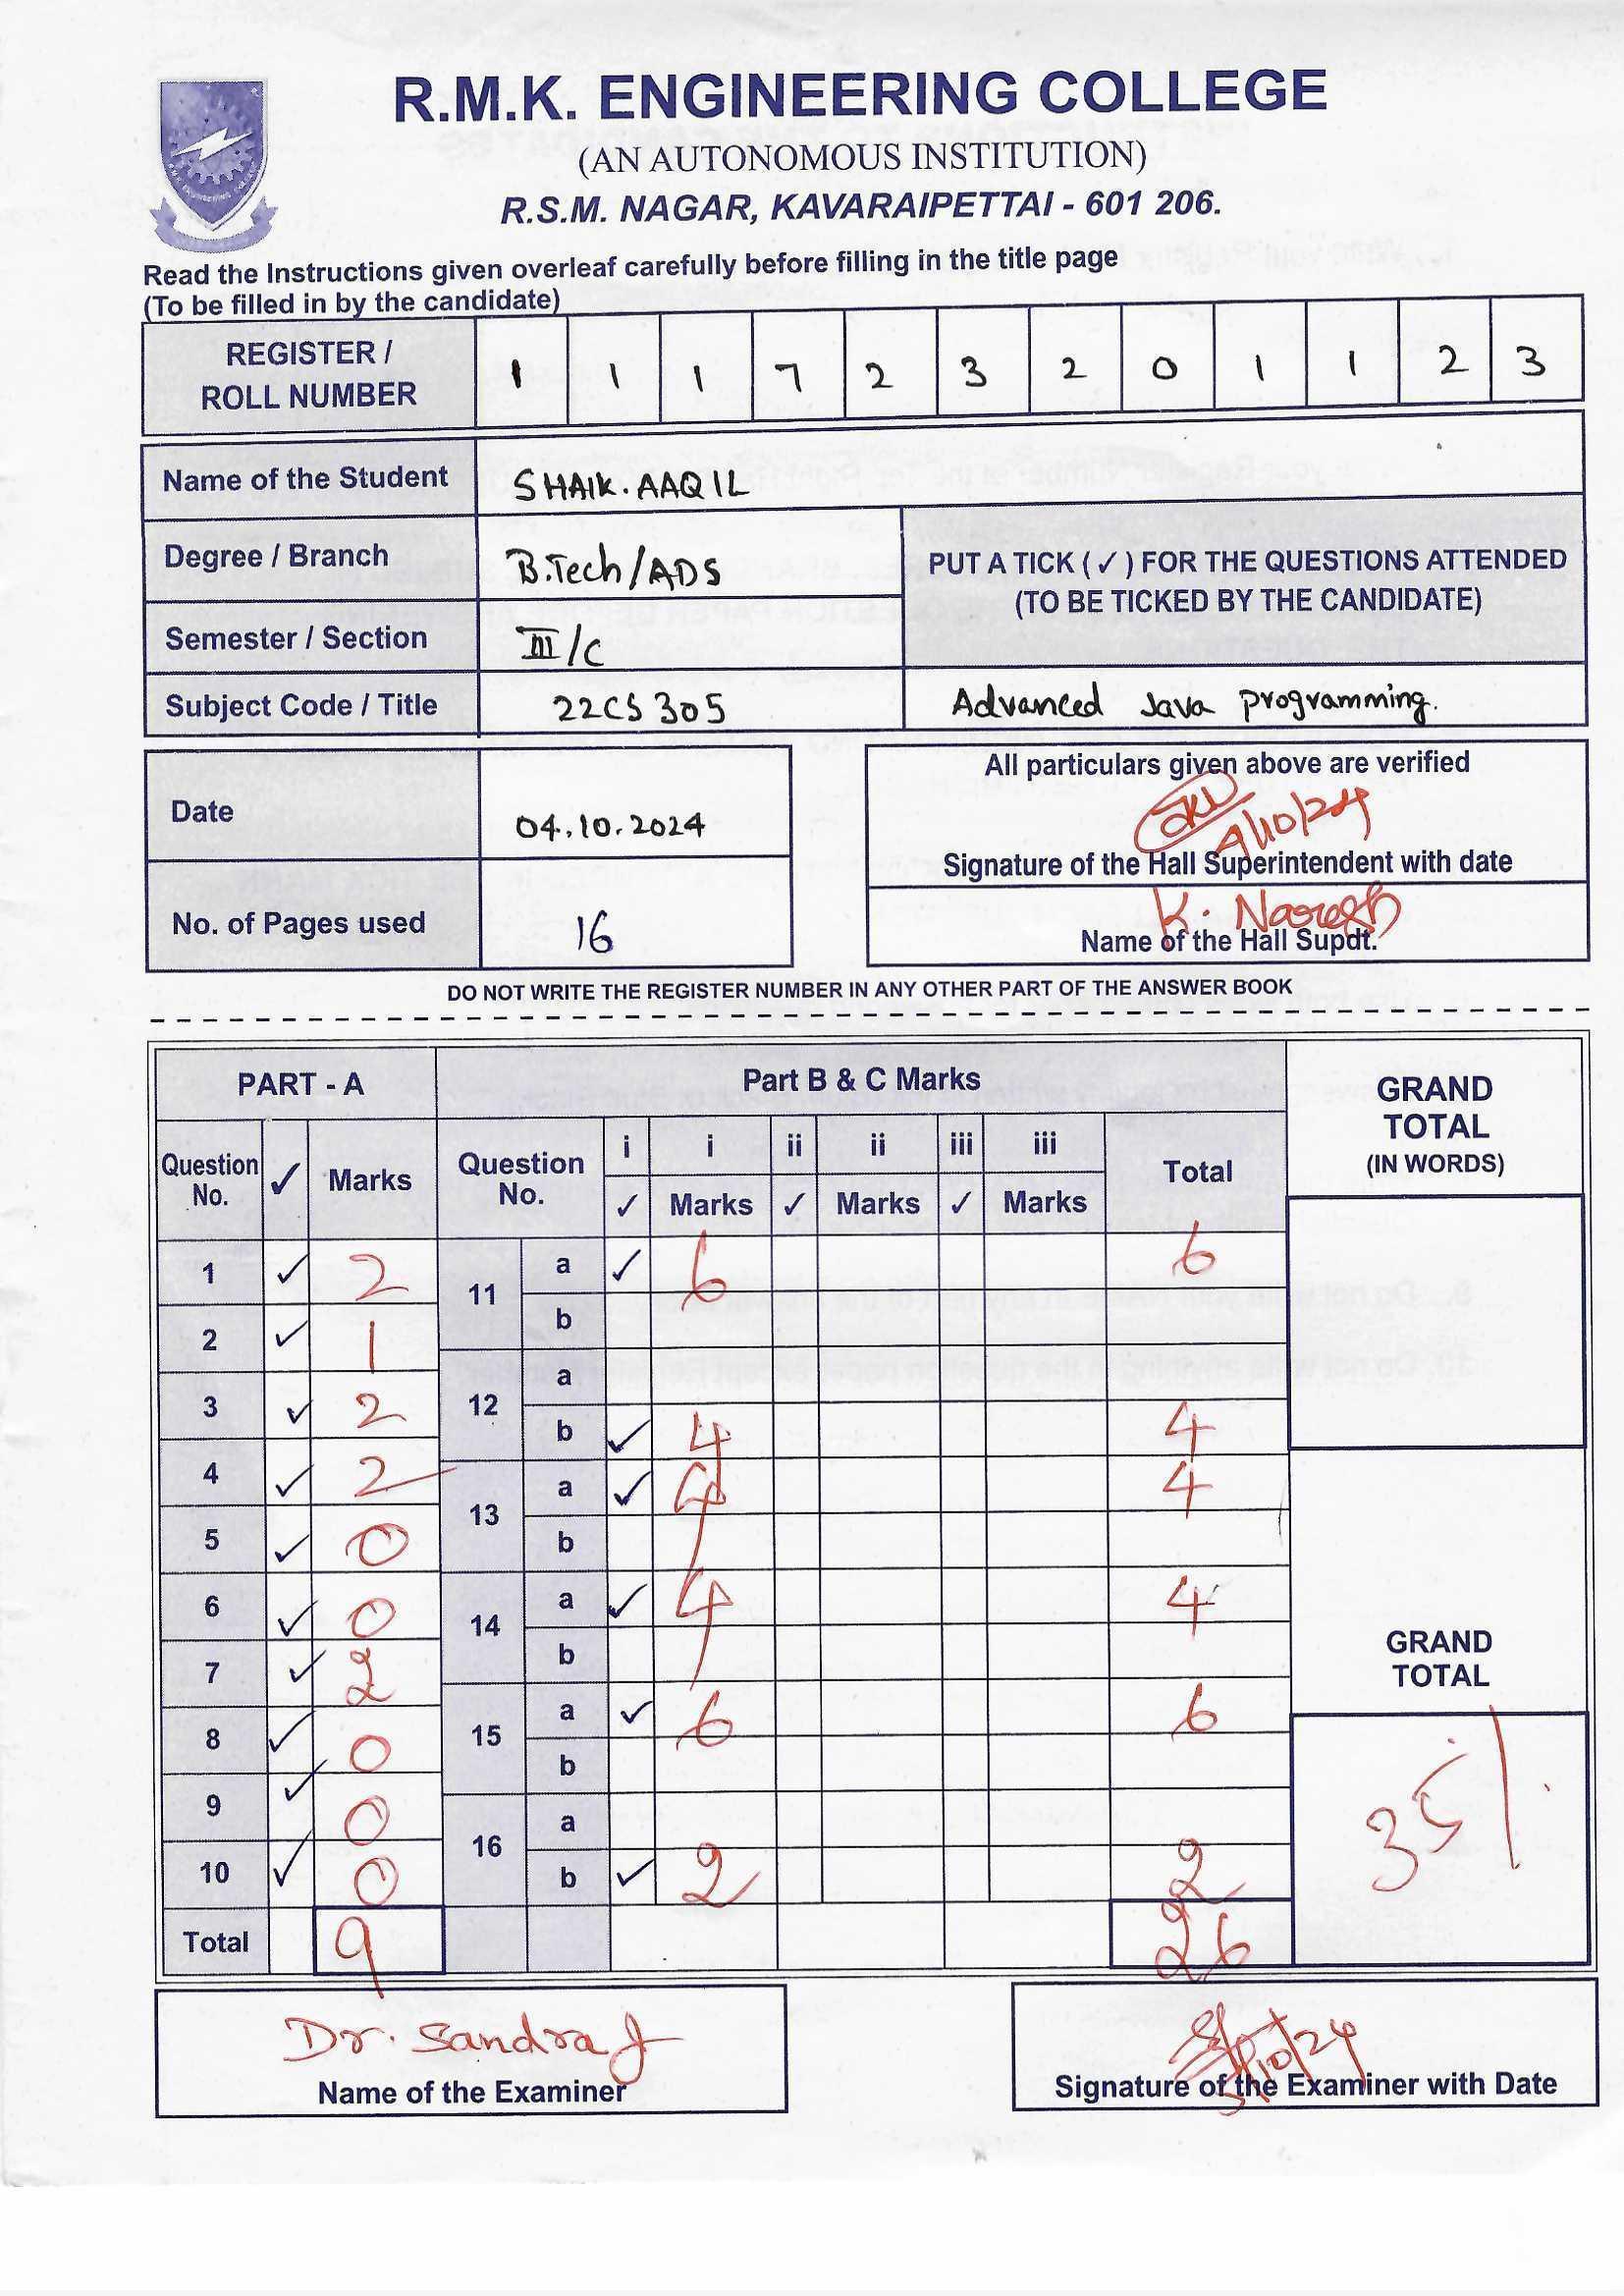 R.M.K. ENGINEERING COLLEGE
(AN AUTONOMOUS INSTITUTION)
R.S.M. NAGAR, KAVARAIPETTAI - 601 206.
Read the Instructions given overleaf carefully before filling in the title page
(To be filled in by the candidate)
REGISTER / ROLL NUMBER 1 1 1 7 2 3 2 0 1 1 2 3
Name of the Student SHAIK.AAQIL
Degree / Branch B.Tech/ADS
PUT A TICK (✓) FOR THE QUESTIONS ATTENDED
(TO BE TICKED BY THE CANDIDATE)
Semester / Section III/C
Subject Code / Title 22CS305 Advanced Java programming.
Date 04.10.2024
All particulars given above are verified
4/10/24
Signature of the Hall Superintendent with date
No. of Pages used 16
K. Naresh
Name of the Hall Supdt.
DO NOT WRITE THE REGISTER NUMBER IN ANY OTHER PART OF THE ANSWER BOOK
PART - A Part B & C Marks GRAND TOTAL (IN WORDS)
Question No. ✓ Marks Question No. i ✓ i Marks ii ✓ ii Marks iii ✓ iii Marks Total
1 ✓ 2 11 a ✓ 6 6
b
2 ✓ 1
12 a
3 ✓ 2
b ✓ 4 4
4 ✓ 2 13 a ✓ 4 4
5 ✓ 0 b
6 ✓ 0 14 a ✓ 4 4
GRAND TOTAL
7 ✓ 2 b
15 a ✓ 6 6
8 ✓ 0
b
9 ✓ 0 35
16 a
10 ✓ 0 b ✓ 2 2
Total 9 26
Dr. Sandra J
Name of the Examiner
5/10/24
Signature of the Examiner with Date